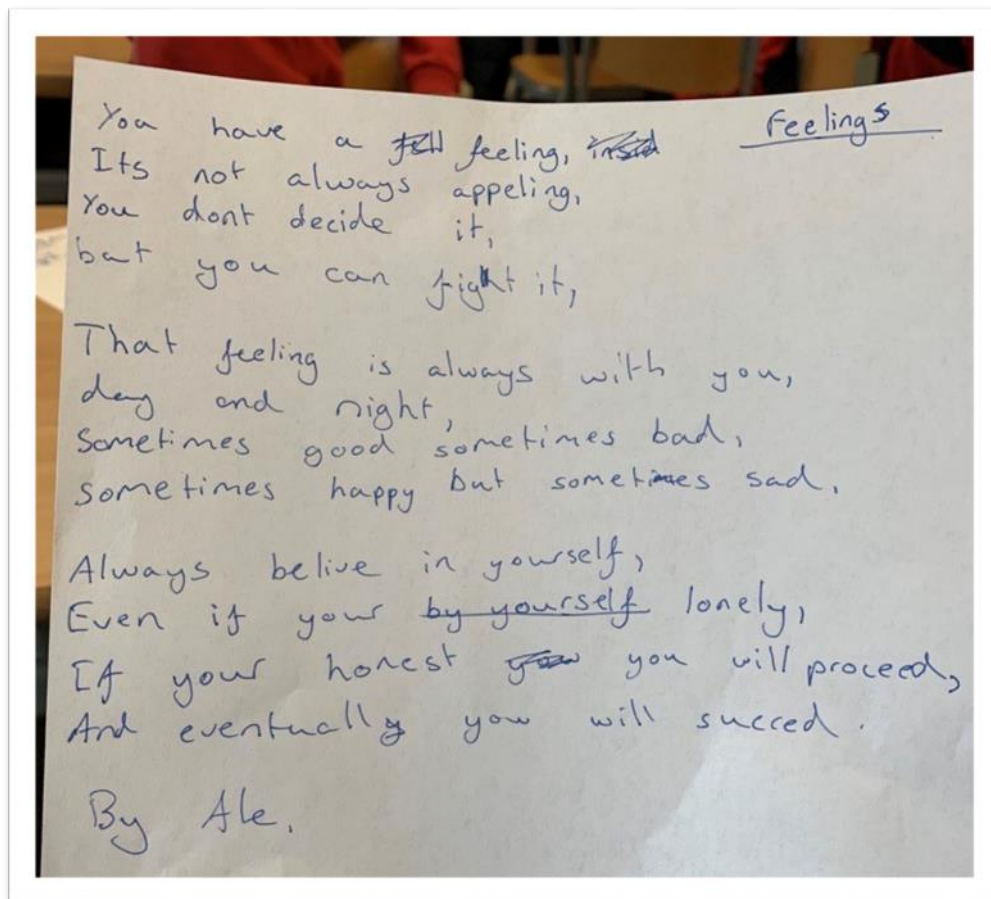 Feelings
You have a feeling,
Its not always appeling,
You dont decide it,
but you can fight it,
That feeling is always with you,
day and night,
Sometimes good sometimes bad,
sometimes happy but sometimes sad.
Always belive in yourself,
Even if your by yourself lonely,
If your honest you will proceed,
And eventually you will succed.
By Ale.